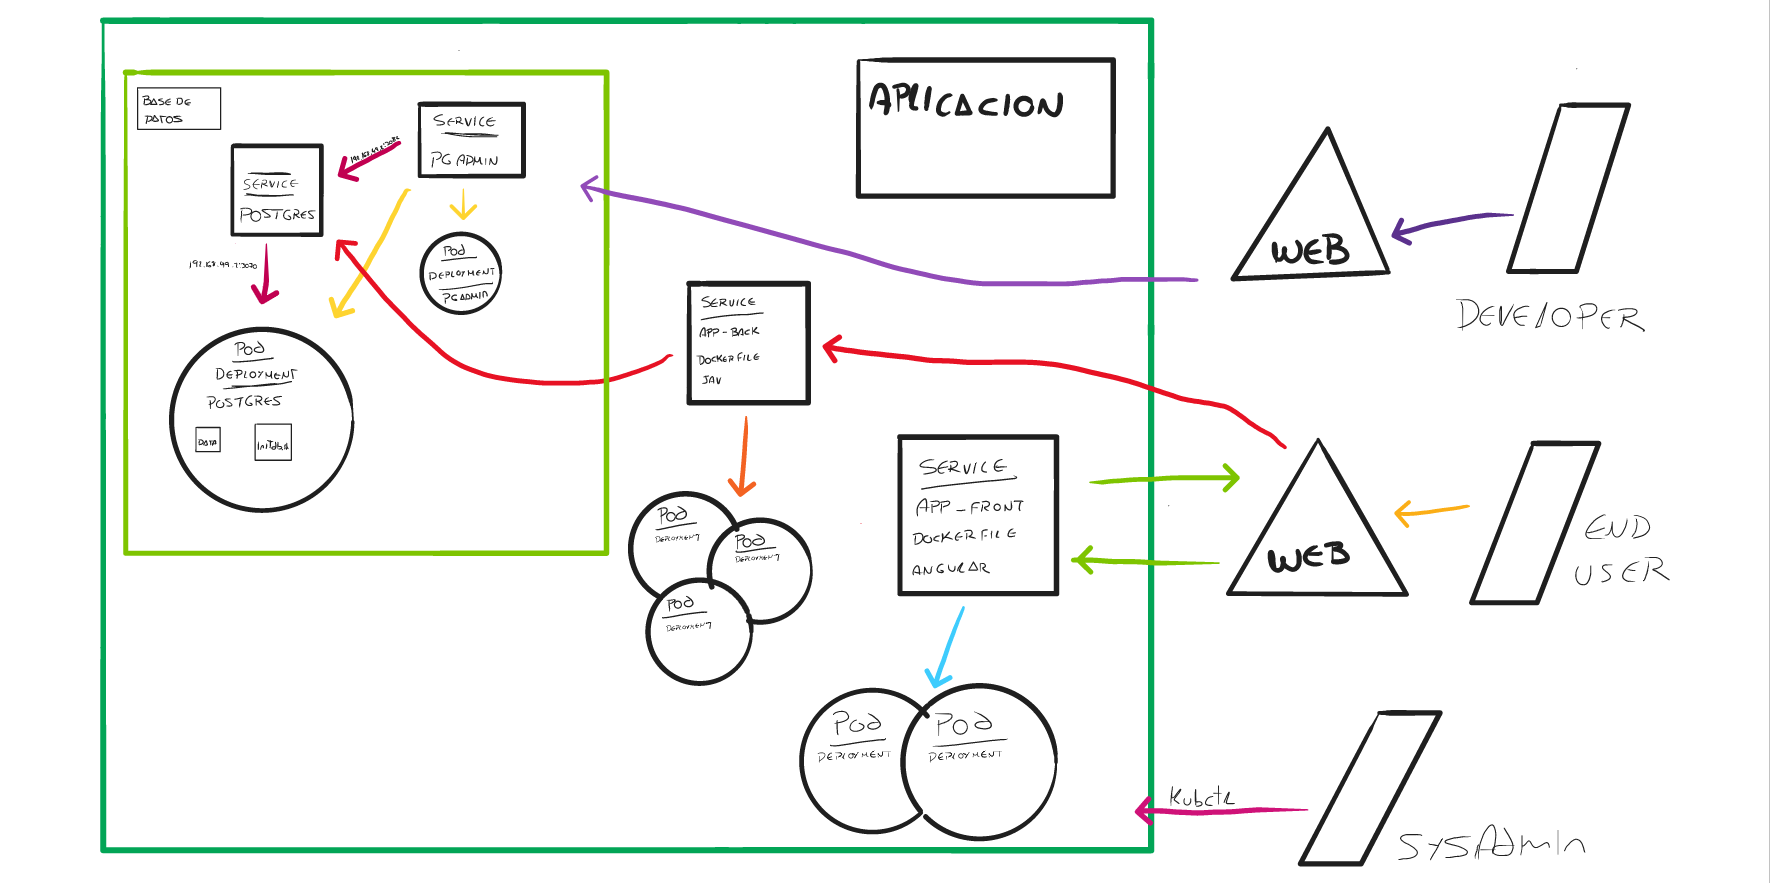 BASE DE
DATOS
SERVICE
PGADMIN
SERVICE
POSTGRES
Pod
DEPLOYMENT
PGADMIN
Pod
DEPLOYMENT
POSTGRES
DATA
APLICACION
SERVICE
APP-BACK
DOCKERFILE
JAV
Pod
DEPLOYMENT
Pod
DEPLOYMENT
Pod
DEPLOYMENT
SERVICE
APP-FRONT
DOCKERFILE
ANGULAR
Pod
DEPLOYMENT
Pod
DEPLOYMENT
WEB
DEVELOPER
WEB
END
USER
Kubctl
SYSAdmin